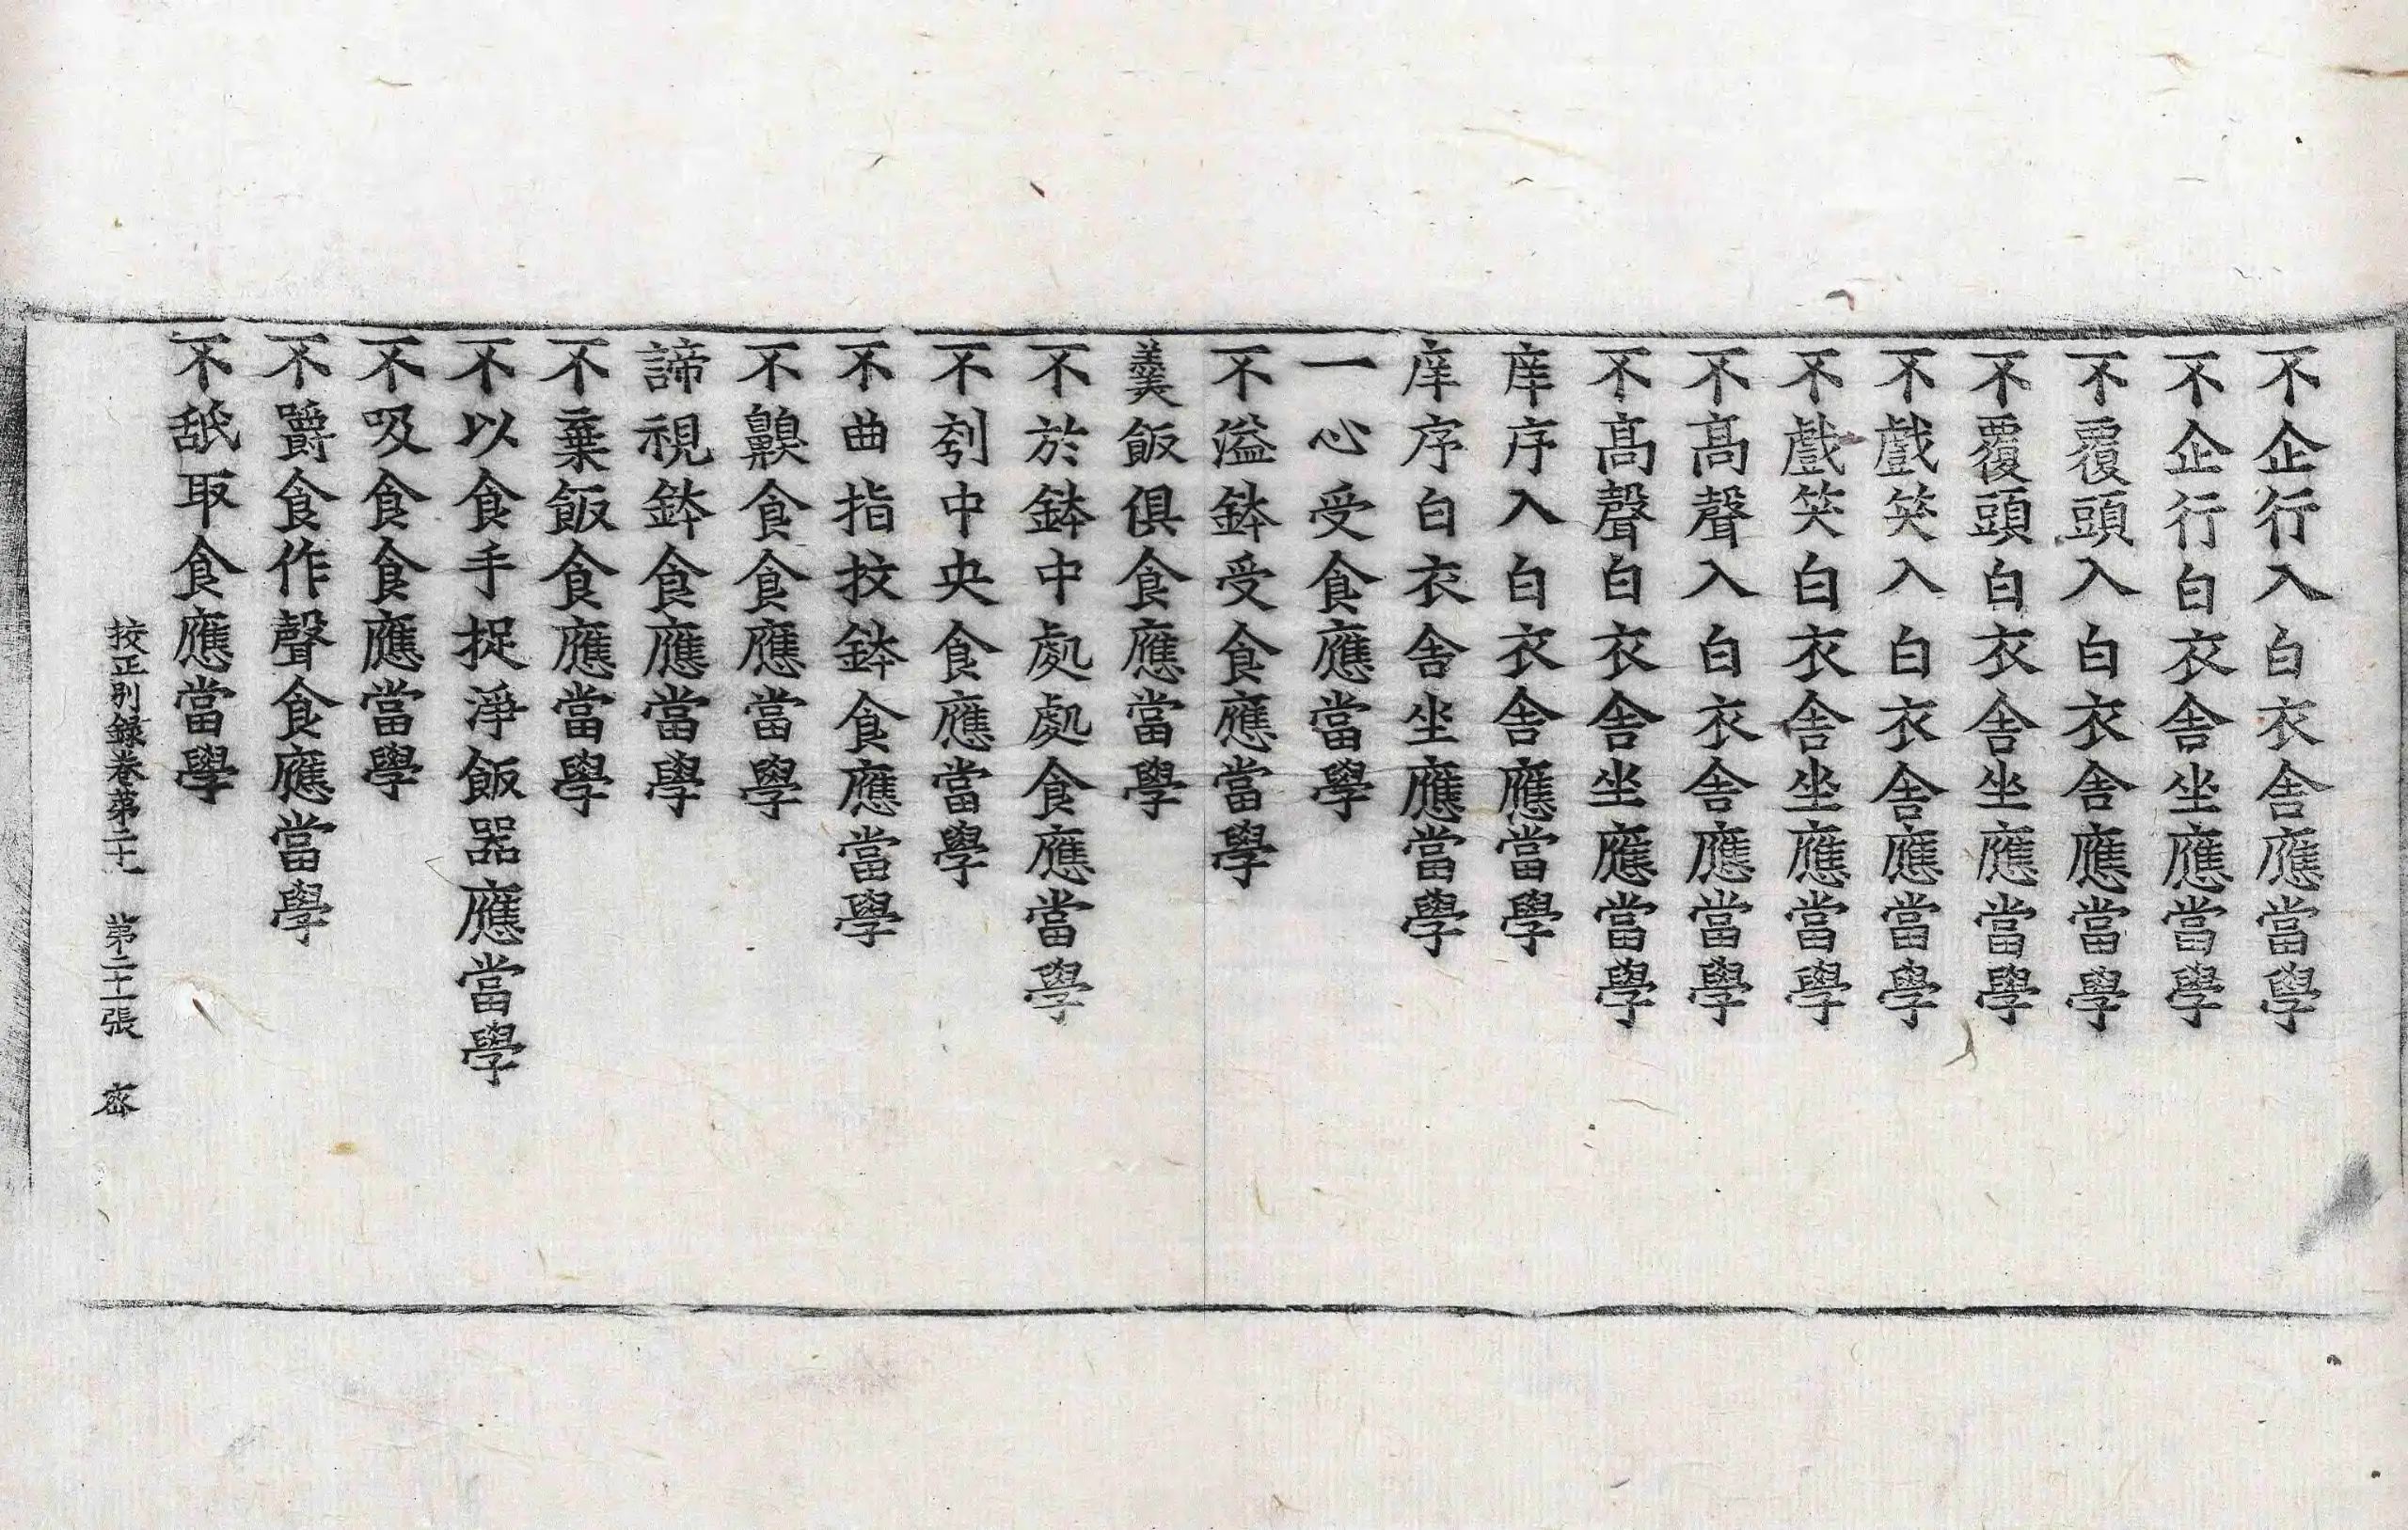 不企行入白衣舎應當學
不企行白衣舎坐應當學
不覆頭入白衣舎應當學
不覆頭白衣舎坐應當學
不戲笑入白衣舎應當學
不戲笑白衣舎坐應當學
不髙聲入白衣舎應當學
不髙聲白衣舎坐應當學
庠序入白衣舎應當學
庠序白衣舎坐應當學
一心受食應當學
不溢鉢受食應當學
羹飯俱食應當學
不於鉢中處處食應當學
不刳中央食應當學
不曲指抆鉢食應當學
不齅食食應當學
諦視鉢食應當學
不棄飯食應當學
不以食手捉淨飯器應當學
不吸食食應當學
不嚼食作聲食應當學
不舐取食應當學
挍正別録卷第二十 第二十一張 宻